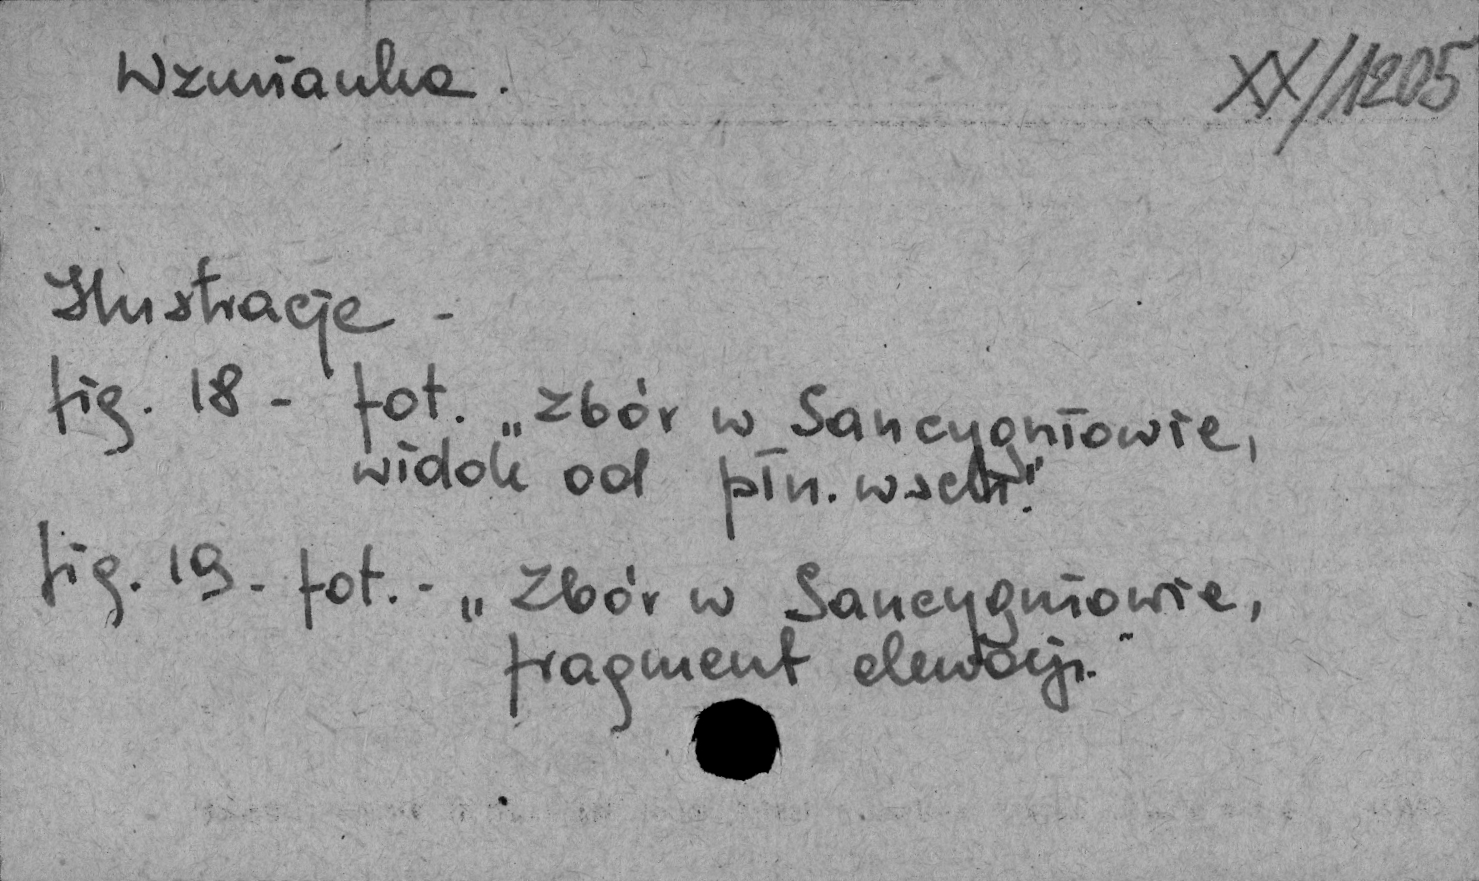 Wzmianka.
XX/1205
Ilustracje -
fig. 18 - fot. „Zbór w Sancygniowie,
widok od płn. wsch."
fig. 19 - fot. - „Zbór w Sancygniowie,
fragment elewacji."